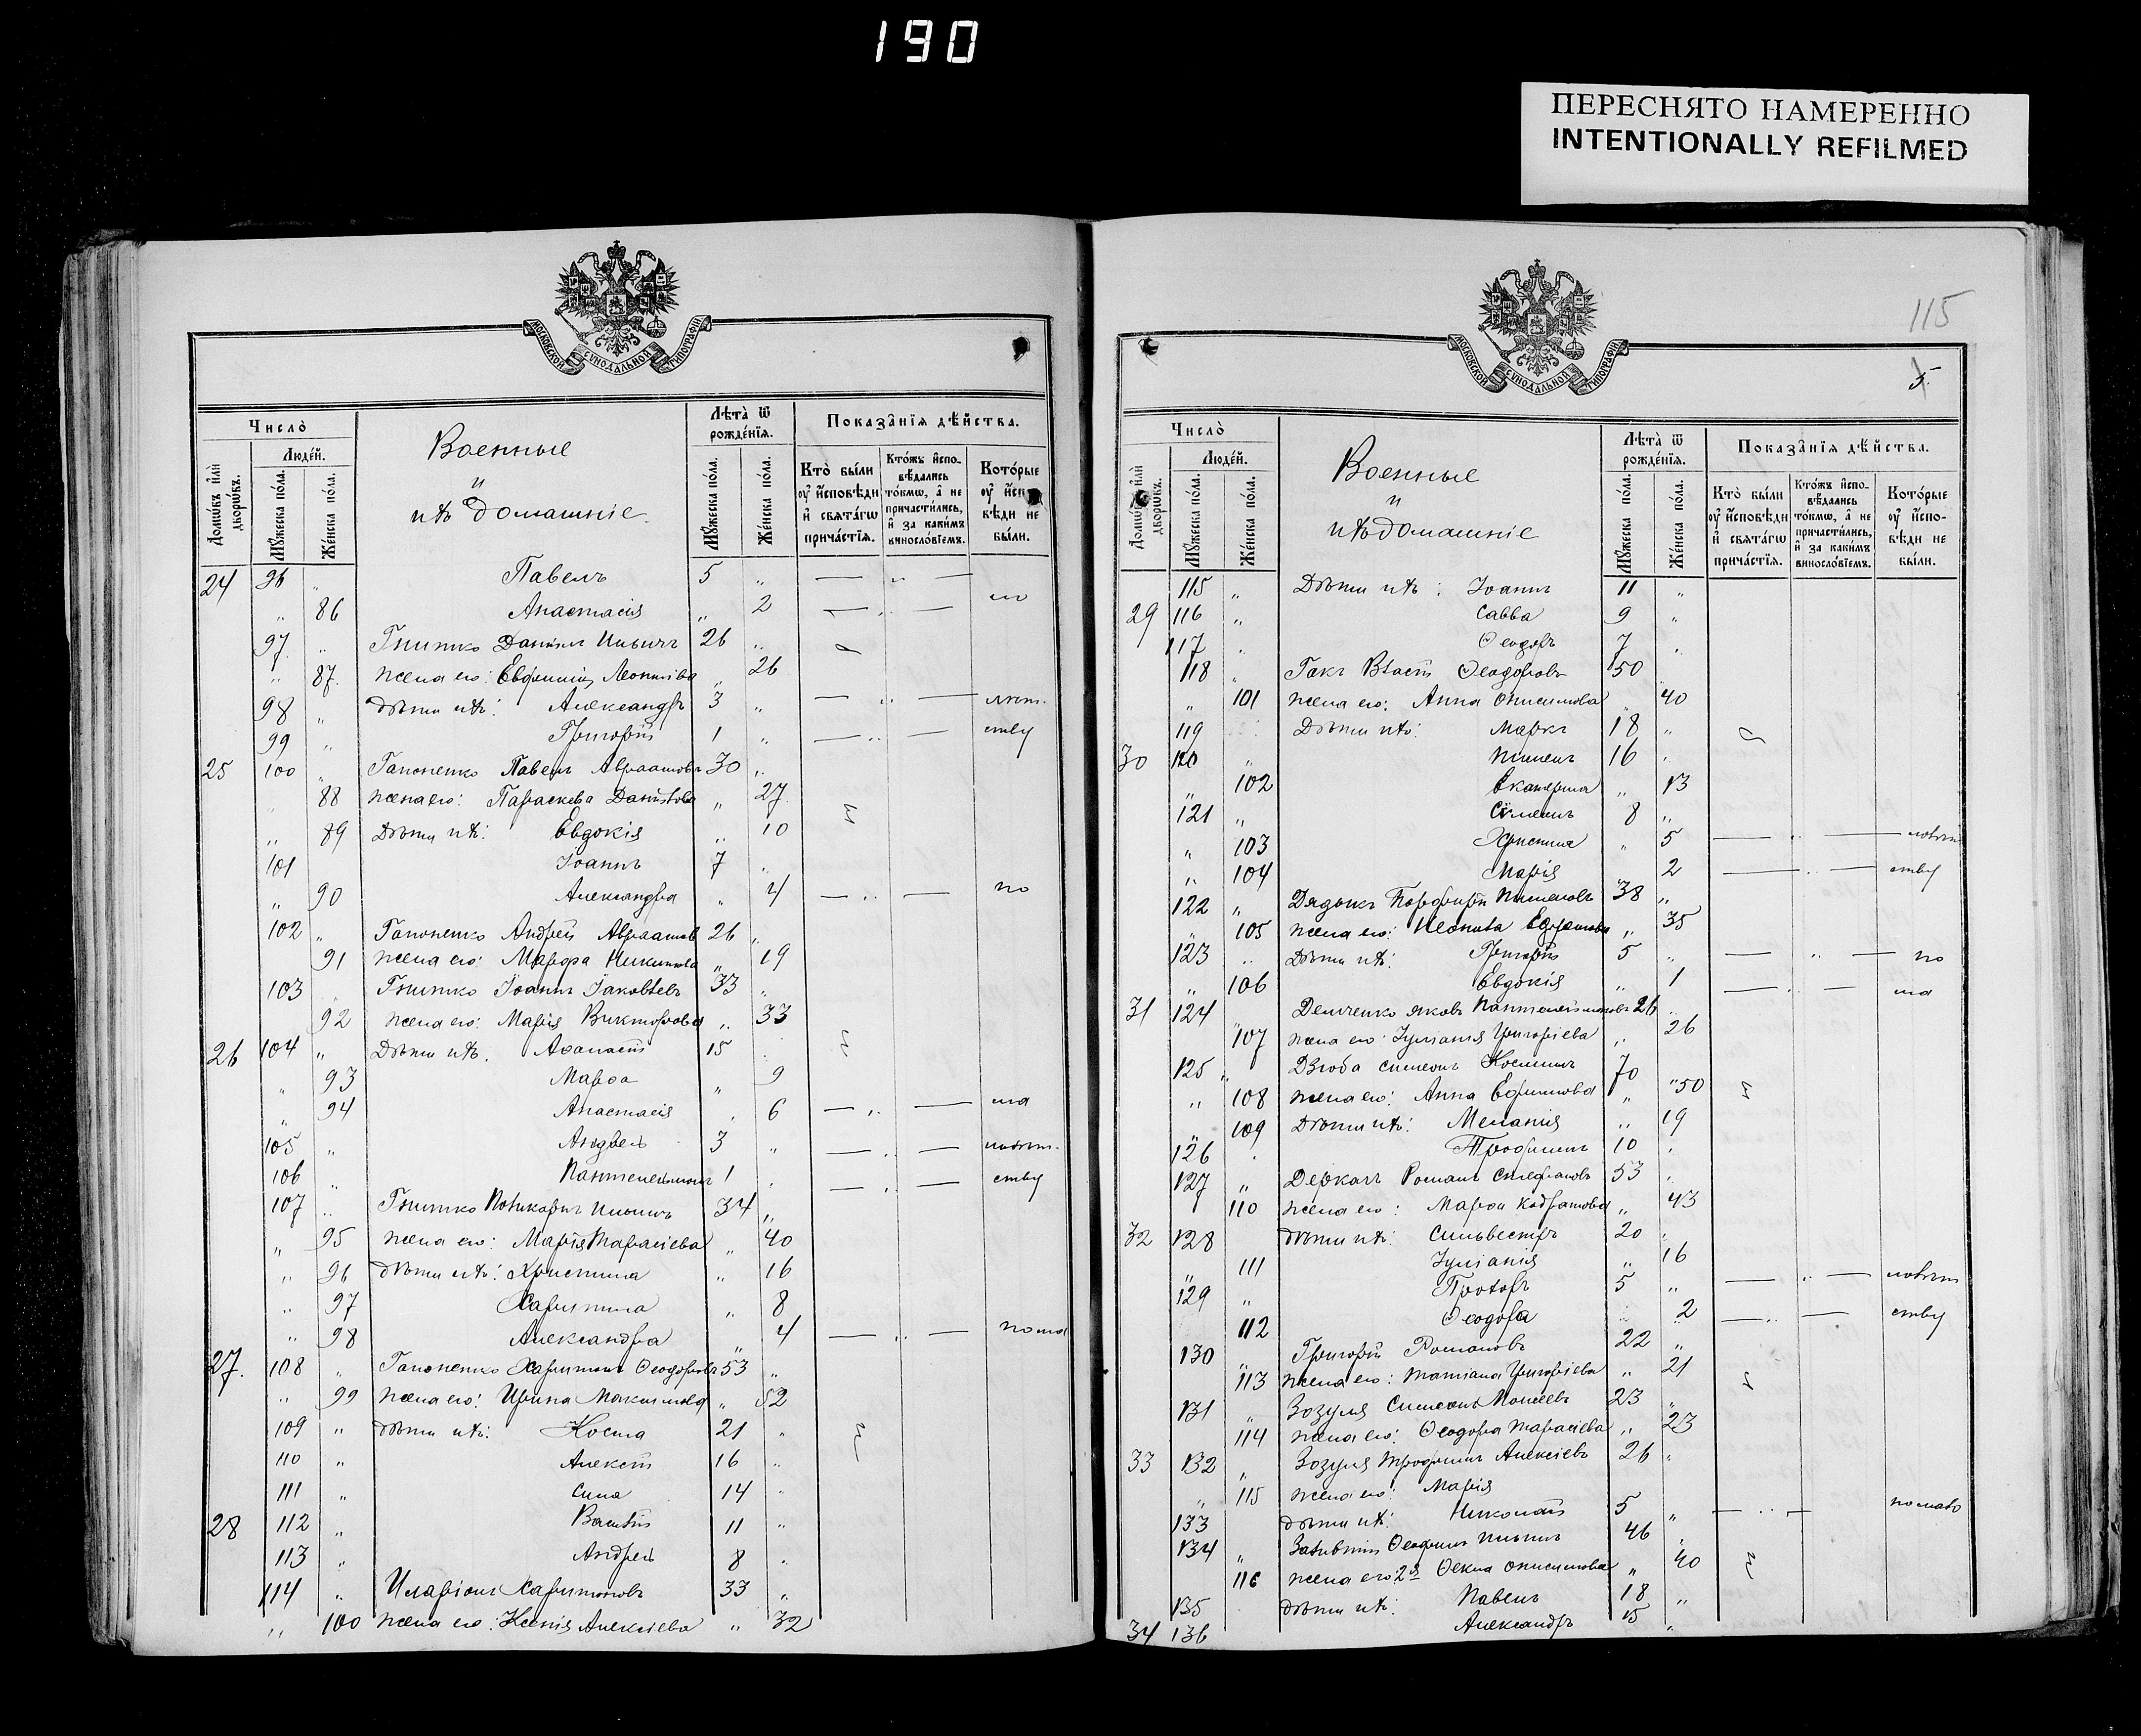 190
ПЕРЕСНЯТО НАМЕРЕННО
INTENTIONALLY REFILMED
115
5.
МОСКОВСКОЙ СѴНОДАЛЬНОЙ ТИПОГРАФІИ
Число̀
Домѡ́въ и҆лѝ дворѡ́въ.
Люде́й.
Мꙋ́жеска по́ла.
Же́нска по́ла.
Военные
и
ихъ домашніе.
Лѣ́та ѿ рожде́нїѧ.
Мꙋ́жеска по́ла.
Же́нска по́ла.
Показа̑нїѧ дѣ́йства.
Кто̀ бы́ли оу҆ и҆сповѣди и҆ свѧта́гѡ прича́стїѧ.
Кто́жъ и҆спо-вѣдались то́кмѡ, а҆ не причасти́лись, и҆ за каки́мъ винослові́емъ.
Кото́рые оу҆ и҆сповѣди не бы́ли.
24 96 „ Павелъ 5 „ — „ —
„ 86 Анастасія „ 2 — „ — ло
97 „ Гнитко Даніилъ Ильичъ 26 „
„ 87. жена его: Евфимія Леонтіева „ 26
98 „ дѣти ихъ: Александръ 3 „ — „ — лѣт-
99 „ Григорій 1 „ — „ — ству
25 100 „ Гапоненко Павелъ Авраамовъ 30 „
88 жена его: Параскева Данилова „ 27.
„ 89 Дѣти ихъ: Евдокія „ 10
101 Іоаннъ 7 „
„ 90 Александра „ 4 — „ — по
102 „ Гапоненко Андрей Авраамов 26 „
91 жена его: Марфа Никитова „ 19
103 Гнитко Іоаннъ Іаковлевъ 33 „
92 жена его: Марія Викторова „ 33
26 104 „ Дѣти ихъ. Аѳанасій 15
„ 93 Марѳа „ 9
„ 94 Анастасія „ 6 — „ — ма
105 „ Андрей 3 „ — „ — лолѣт-
106 „ Пантелеимонъ 1 „ — „ — ству
107 „ Гнитко Поликарпъ Ильичъ 34 „
„ 95 жена его: Марія Тарасіева „ 40
„ 96 дѣти ихъ: Христина „ 16
„ 97 Харитина „ 8
„ 98 Александра „ 4 — „ — по ма
27. 108 „ Гапоненко Харитонъ Ѳеодоровъ 53 „
„ 99 жена его: Ирина Максимова „ 52
109 „ дѣти ихъ: Косма 21 „
110 „ Алексій 16 „
111 „ Сила 14 „
28 112 „ Василій 11 „
113 „ Андрей 8 „
114 „ Иларіонъ Харитоновъ 33 „
„ 100 жена его: Ксенія Алексіева „ 32
МОСКОВСКОЙ СѴНОДАЛЬНОЙ ТИПОГРАФІИ
Число̀
Домѡ́въ и҆лѝ дворѡ́въ.
Люде́й.
Мꙋ́жеска по́ла.
Же́нска по́ла.
Военные
и
ихъ домашніе
Лѣ́та ѿ рожде́нїѧ.
Мꙋ́жеска по́ла.
Же́нска по́ла.
Показа̑нїѧ дѣ́йства.
Кто̀ бы́ли оу҆ и҆сповѣди и҆ свѧта́гѡ прича́стїѧ.
Кто́жъ и҆спо-вѣдались то́кмѡ, а҆ не причасти́лись, и҆ за каки́мъ винослові́емъ.
Кото́рые оу҆ и҆спо-вѣди не бы́ли.
115 „ Дѣти ихъ: Іоаннъ 11 „
29 116 „ Савва 9 „
117 „ Ѳеодоръ 7 „
118 „ Гакъ Ѳеодоровъ 50
„ 101 жена его: Анна Онисимова „ 40
119 Дѣти ихъ: Маркъ 18 „
30 120 „ Пименъ 16 „
„ 102 Екатерина „ 13
121 „ Сѵмеонъ 8 „
„ 103 Христина „ 5 — „ — лолѣт
„ 104 Марія „ 2 — „ — ству
122 „ Дядыкъ Порфирій Пименовъ 38 „
„ 105 жена его: Ефремова „ 35
123 „ Дѣти ихъ: Григорій 5 „ — „ — по
„ 106 Евдокія „ 1 — „ — ма
31 124 Демченко Яковъ Пантелеимоновъ 26 „
107 жена его: Іуліанія Григоріева „ 26
125 „ Дзюба Симеонъ Космичъ 70
„ 108 жена его: Анна Ефимова „ 50
„ 109 Дѣти ихъ: Меланія „ 19
126 Трофимъ 10 „
127 „ Деркачъ Романъ Стефановъ 53 „
110 жена его: Марѳа Кодратова „ 43
32 128 дѣти ихъ: Сильвестръ 20 „
„ 111 Іуліанія „ 16
129 „ Прохоръ 5 „ — „ — лолѣт
112 Ѳеодора „ 2 — ству
130 „ Григорій Романовъ 22 „
113 жена его: Татіана Григоріева „ 21
131 „ Зозуля Симеонъ Моисеевъ 23 „
114 жена его: Ѳеодора Тарасіева „ 23
33 132 „ Зозуля Трофимъ Алексіевъ 26 „
„ 115 жена его: Марія
133 дѣти ихъ: Николай 5 „ — „ — по мало
134 „ Ильичъ 46 „
116 жена его 2я Ѳекла Онисимова „ 40
135 дѣти ихъ: Павелъ 18 „
34 136 Александръ 15 „